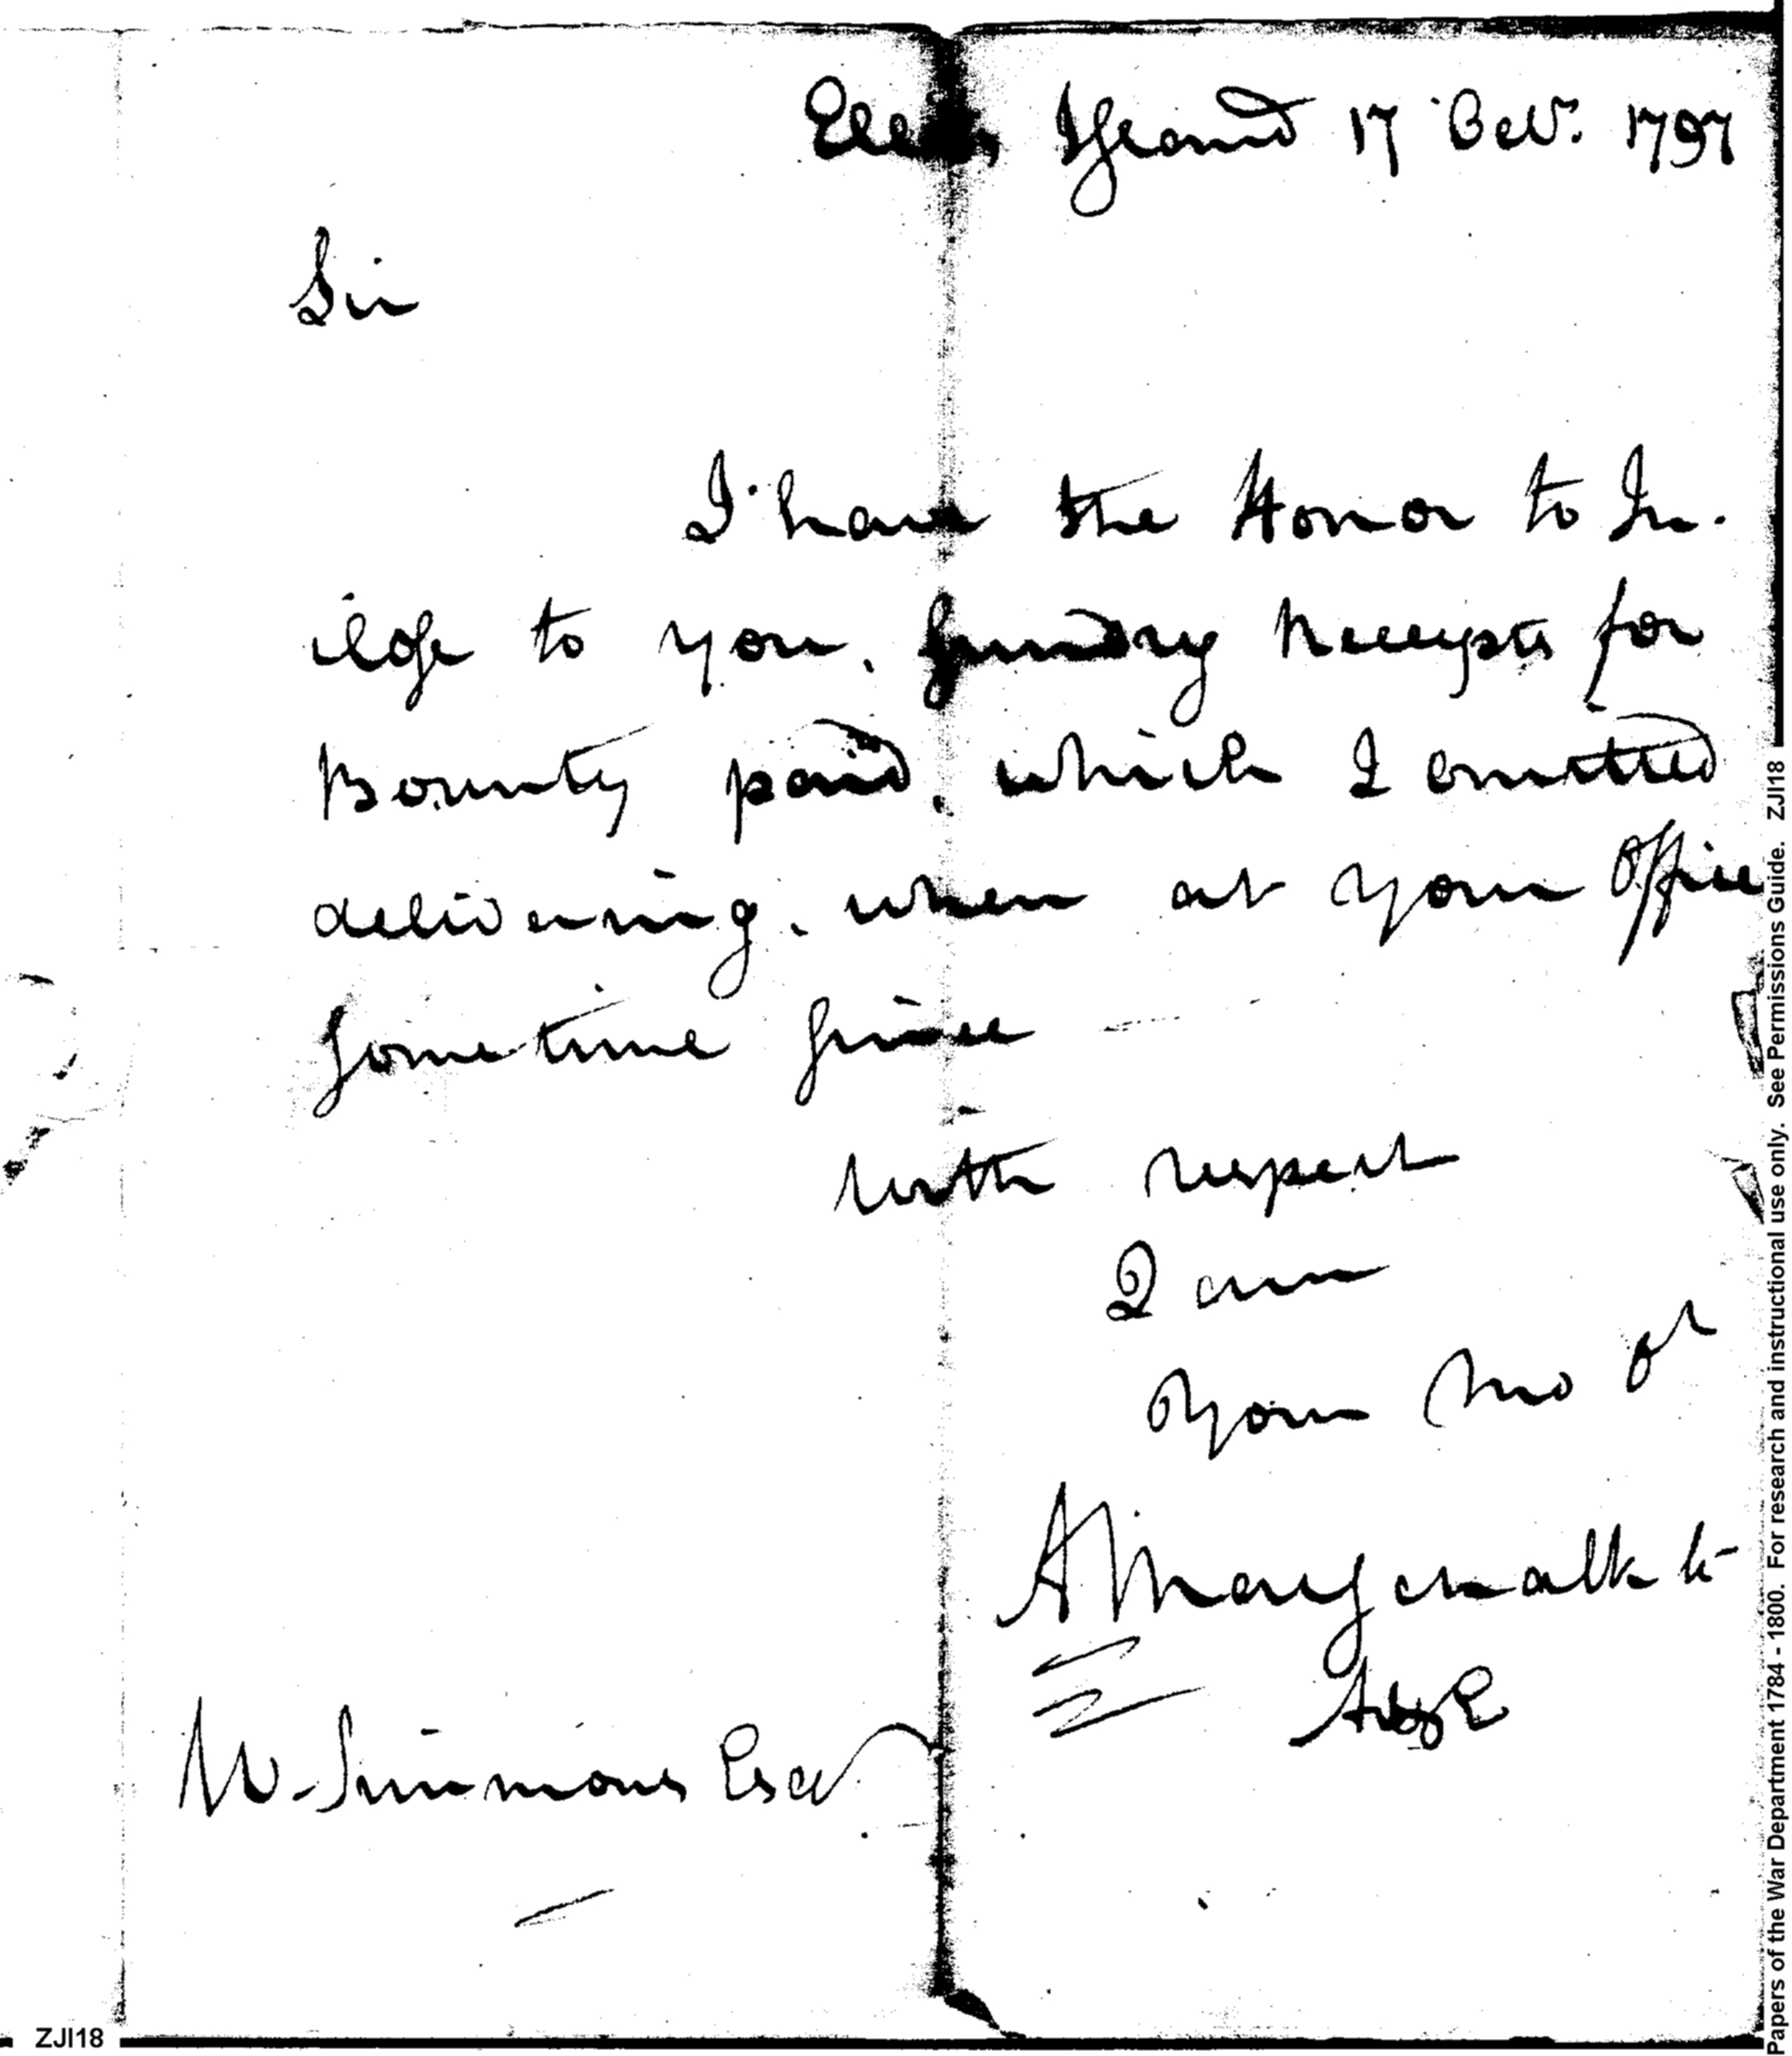 Island 17 Octr. 1797
Sir
I have the Honor to In-
close to you, sundry Receipts for
Bounty paid, which I omitted
delivering, when at your Office
sometime since
with respect
I am
Your mo ot
A Marschalk Lt
A&E
W. Simmons Esqr
ZJI18
Papers of the War Department 1784 - 1800. For research and instructional use only. See Permissions Guide. ZJI18